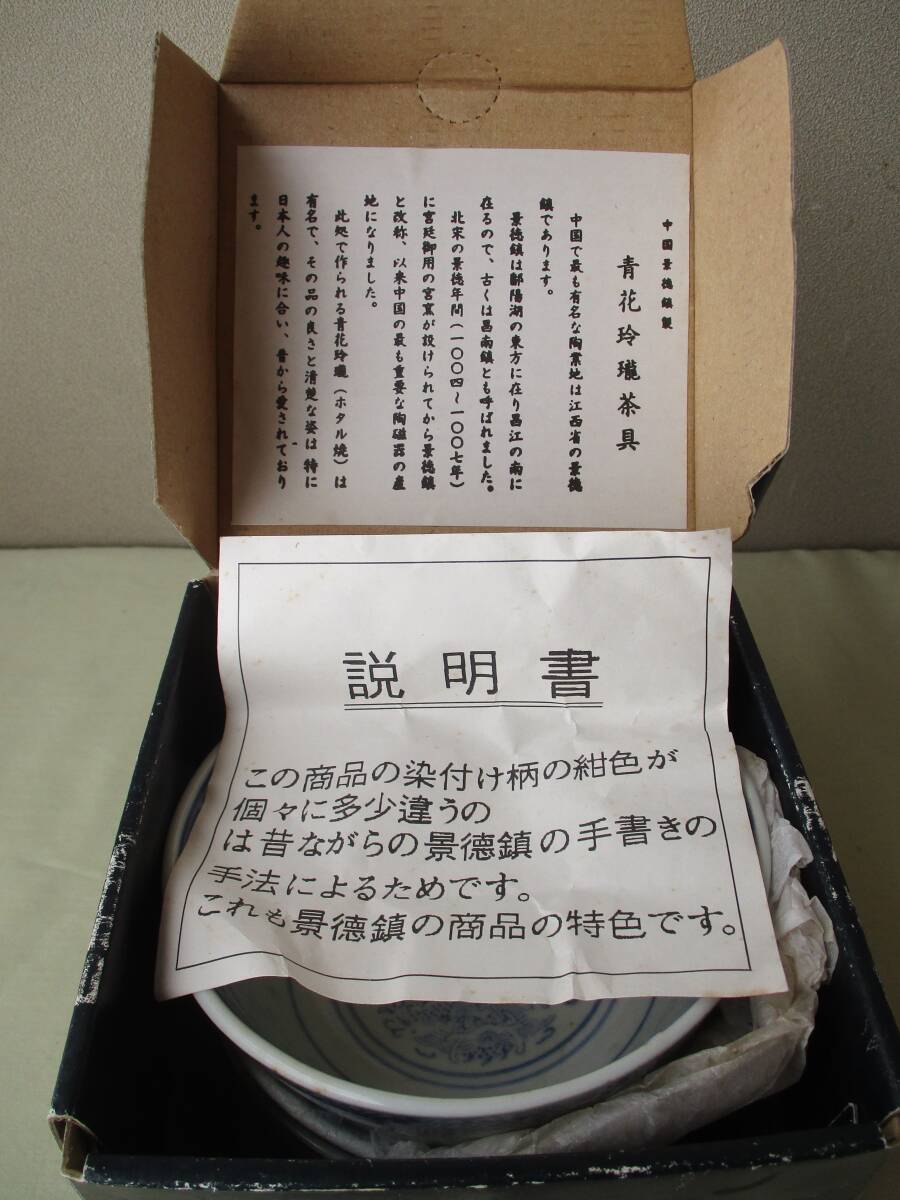 中国景徳鎮製
青花玲瓏茶具
中国で最も有名な陶業地は江西省の景徳
鎮であります。
景徳鎮は鄱陽湖の東方に在り昌江の南に
在るので、古くは昌南鎮とも呼ばれました。
北宋の景徳年間(一〇〇四～一〇〇七年)
に宮廷御用の宮窯が設けられてから景徳鎮
と改称、以来中国の最も重要な陶磁器の産
地になりました。
此処で作られる青花玲瓏(ホタル焼)は
有名で、その品の良さと清楚な姿は特に
日本人の趣味に合い、昔から愛されており
ます。
説明書
この商品の染付け柄の紺色が
個々に多少違うの
は昔ながらの景德鎮の手書きの
手法によるためです。
これも景德鎮の商品の特色です。